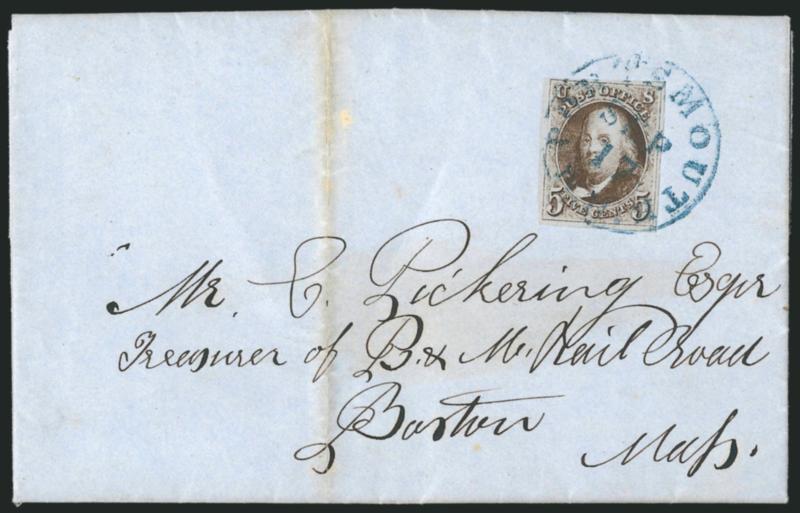 PORTSMOUTH
U S
POST OFFICE
FIVE CENTS
5 5
Mr. C. Pickering Esqr
Treasurer of B. & Me. Rail Road
Boston
Mass.